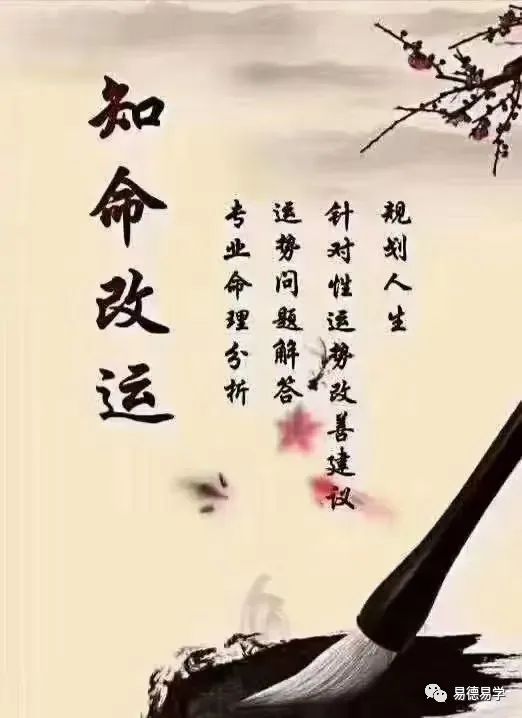 知命改运
专业命理分析
运势问题解答
针对性运势改善建议
规划人生
易德易学